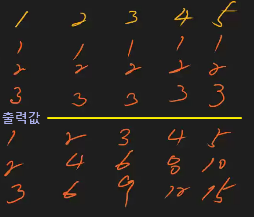 1 2 3 4 5
1 1 1 1 1
2 2 2 2 2
3 3 3 3 3
출력값
1 2 3 4 5
2 4 6 8 10
3 6 9 12 15